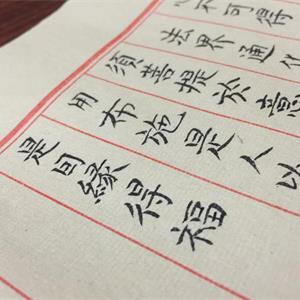 不可得
法界通化
須菩提於意
用布施是人以
是因緣得福